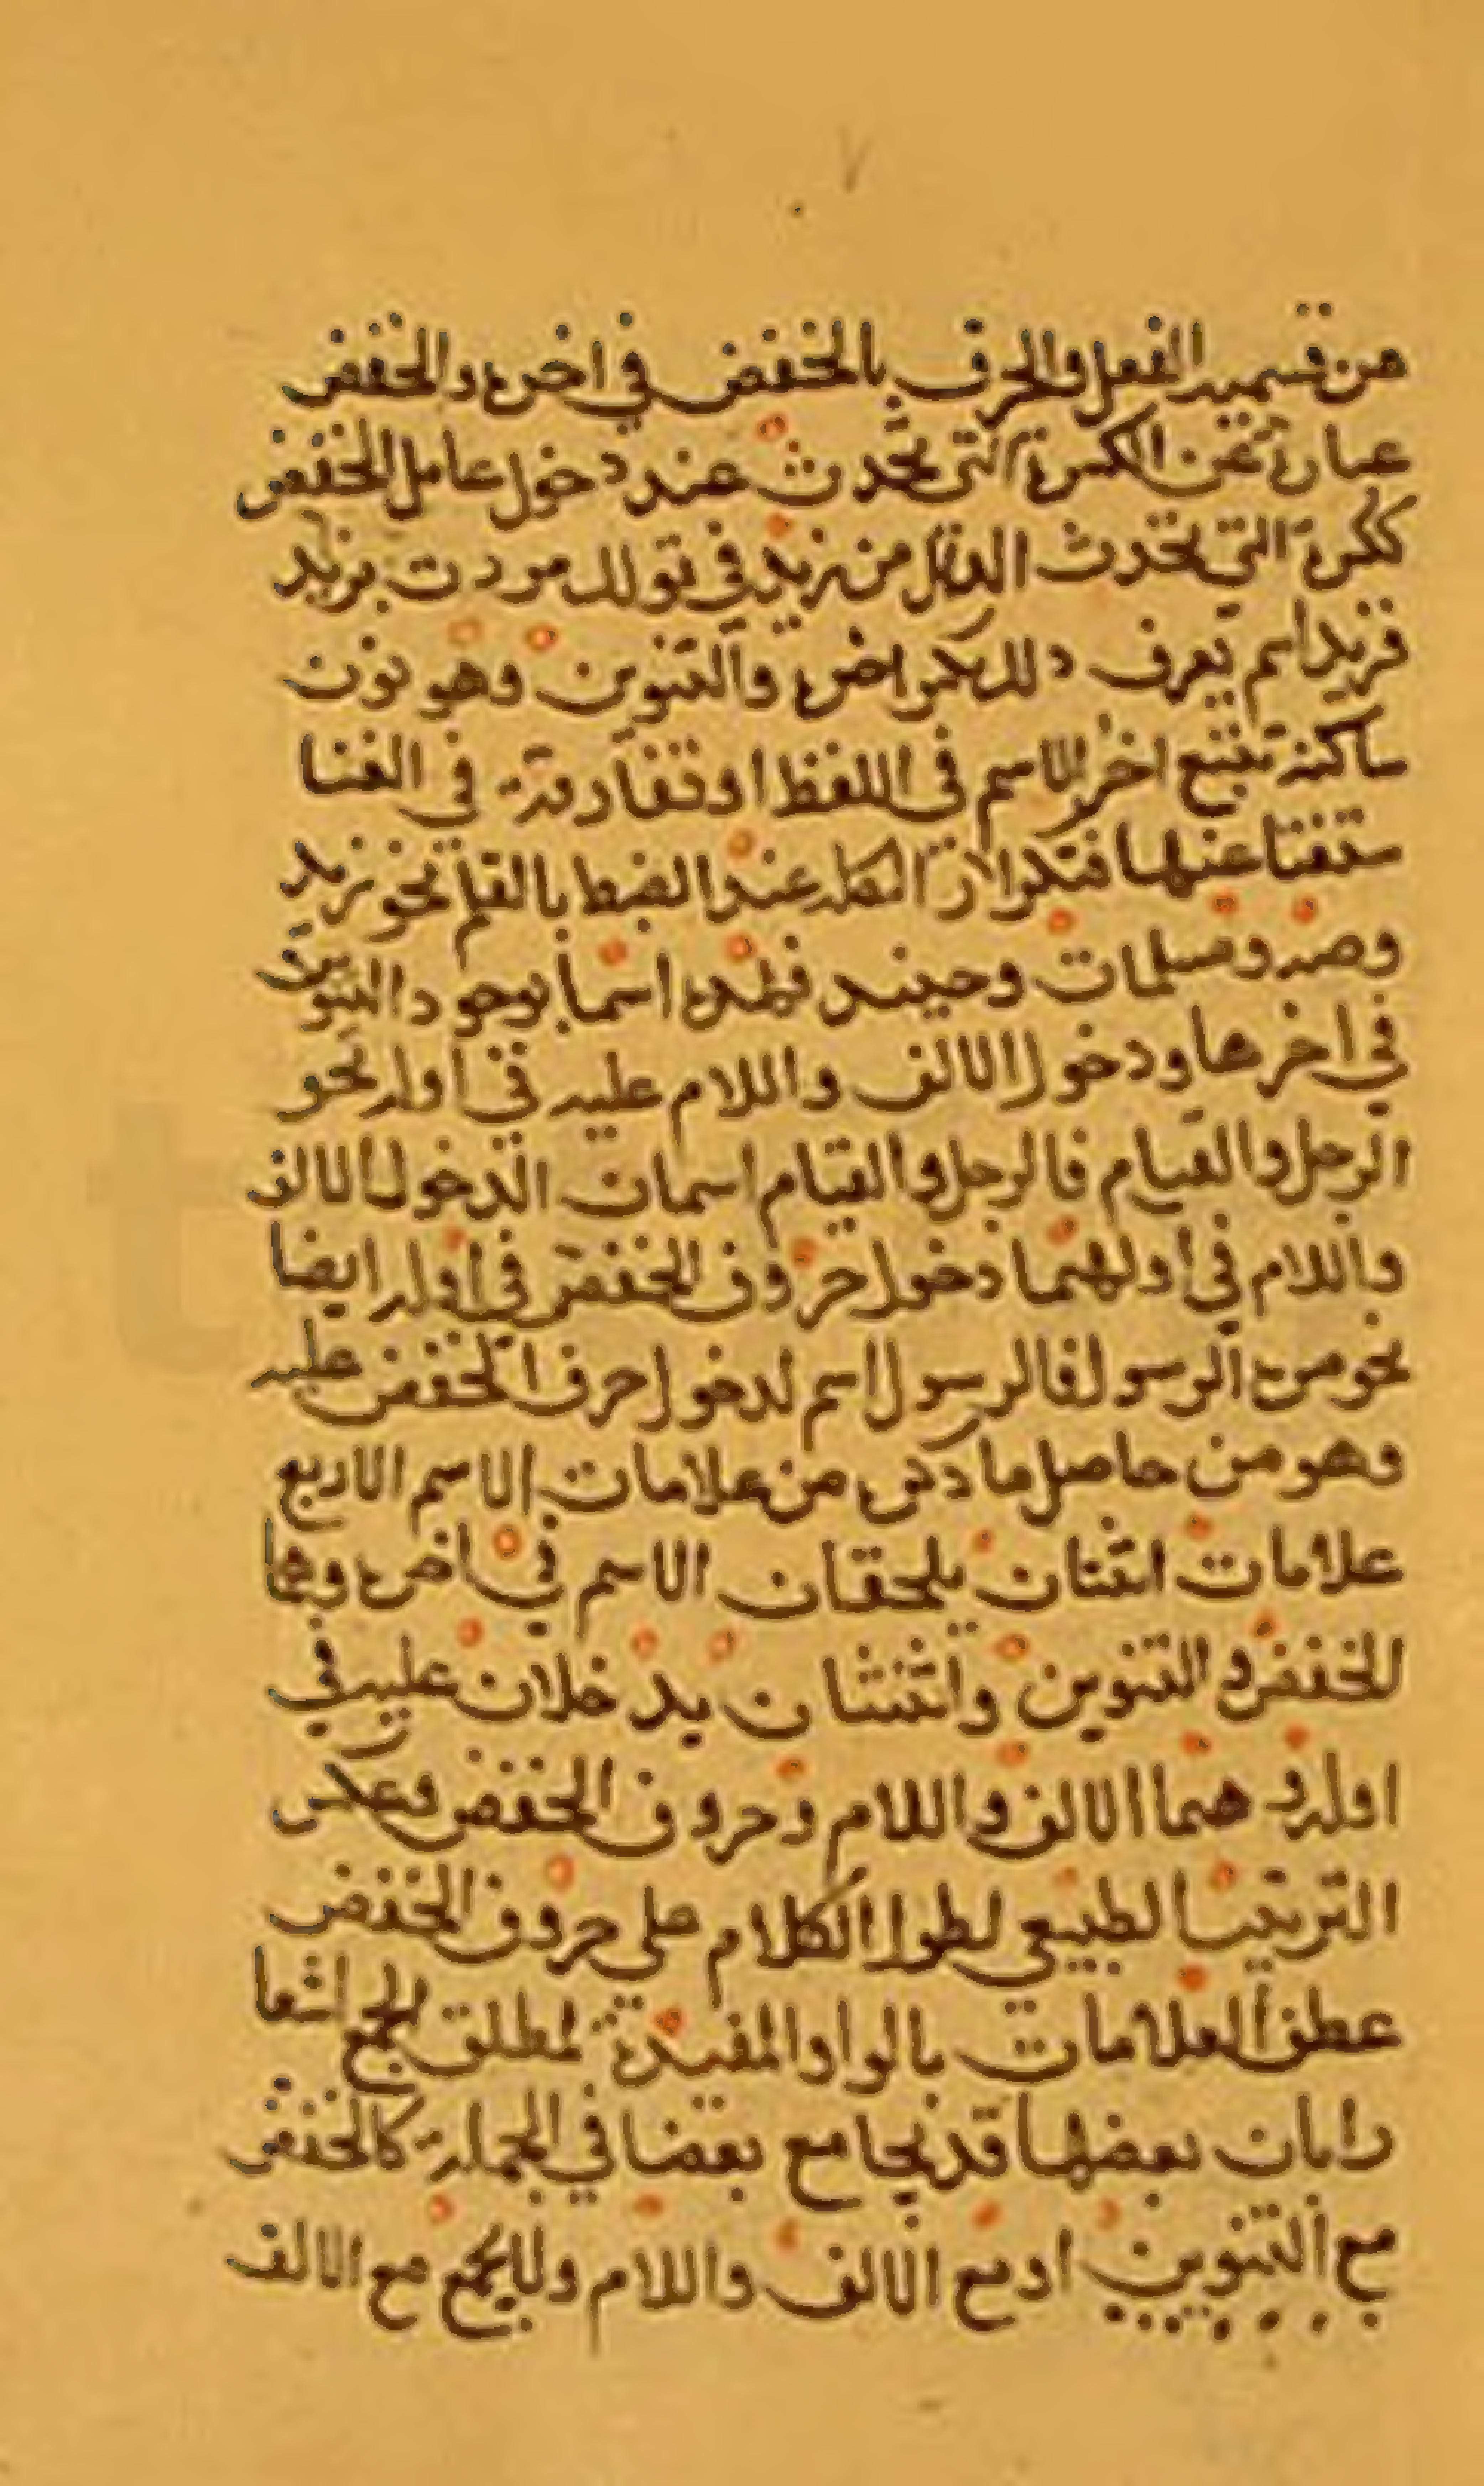 ٧
من قسميه الفعل والحرف بالخفض في اخره والخفض
عبارة عن الكسرة التي تحدث عند دخول عامل الخفض
ككسرة التي تحدث الدال من زيد في قولك مررت بزيد
فزيد اسم يعرف ذلك بكسر اخره والتنوين وهو نون
ساكنة تتبع اخر الاسم في اللفظ او تفارقه في الخط
ستغنا عنها بتكرار الشكلة عند الضبط بالقلم نحو زيد
وصه ومسلمات وحينئد فهذه اسما بوجود التنوين
في اخرها ودخول الالف واللام عليه في اوله نحو
الرجل والقيام فالرجل والقيام اسمان الدخول الالف
واللام في اولهما دخول حروف الخفض في اوله ايضا
نحو من الرسول فالرسول اسم لدخول حرف الخفض عليه
وهو من حاصل ما ذكره من علامات الاسم الاربع
علامات اثنان يلحقان الاسم في اخره وهما
الخفض والتنوين واثنتان يدخلان عليه في
اوله وهما الالف واللام وحروف الخفض وعكس
الترتيب الطبيعي لطول الكلام على حروف الخفض
عطف العلامات بالواو المفيدة لمطلق الجمع اشعا
را بان بعضها قد يجامع بعضا في الجملة كالخفض
مع التنوين او مع الالف واللام ولا يجمع مع الالف